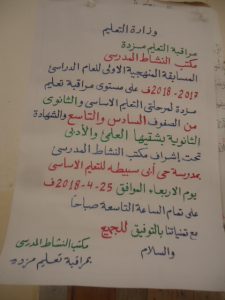 وزارة التعليم
مراقبة التعليم مزدة
مكتب النشاط المدرسي
المسابقة المنهجية الأولى للعام الدراسي
2017-2018ف على مستوى مراقبة تعليم
مزدة لمرحلتي التعليم الأساسي والثانوي
من الصفوف السادس والتاسع والشهادة
الثانوية بشقيها العلمي والأدبي
تحت إشراف مكتب النشاط المدرسي
بمدرسة حي أبي سبيطه للتعليم الأساسي
يوم الأربعاء الموافق 25-4-2018ف
على تمام الساعة التاسعة صباحاً
مع تمنياتنا بالتوفيق للجميع
والسلام
مكتب النشاط المدرسي
بمراقبة تعليم مزده